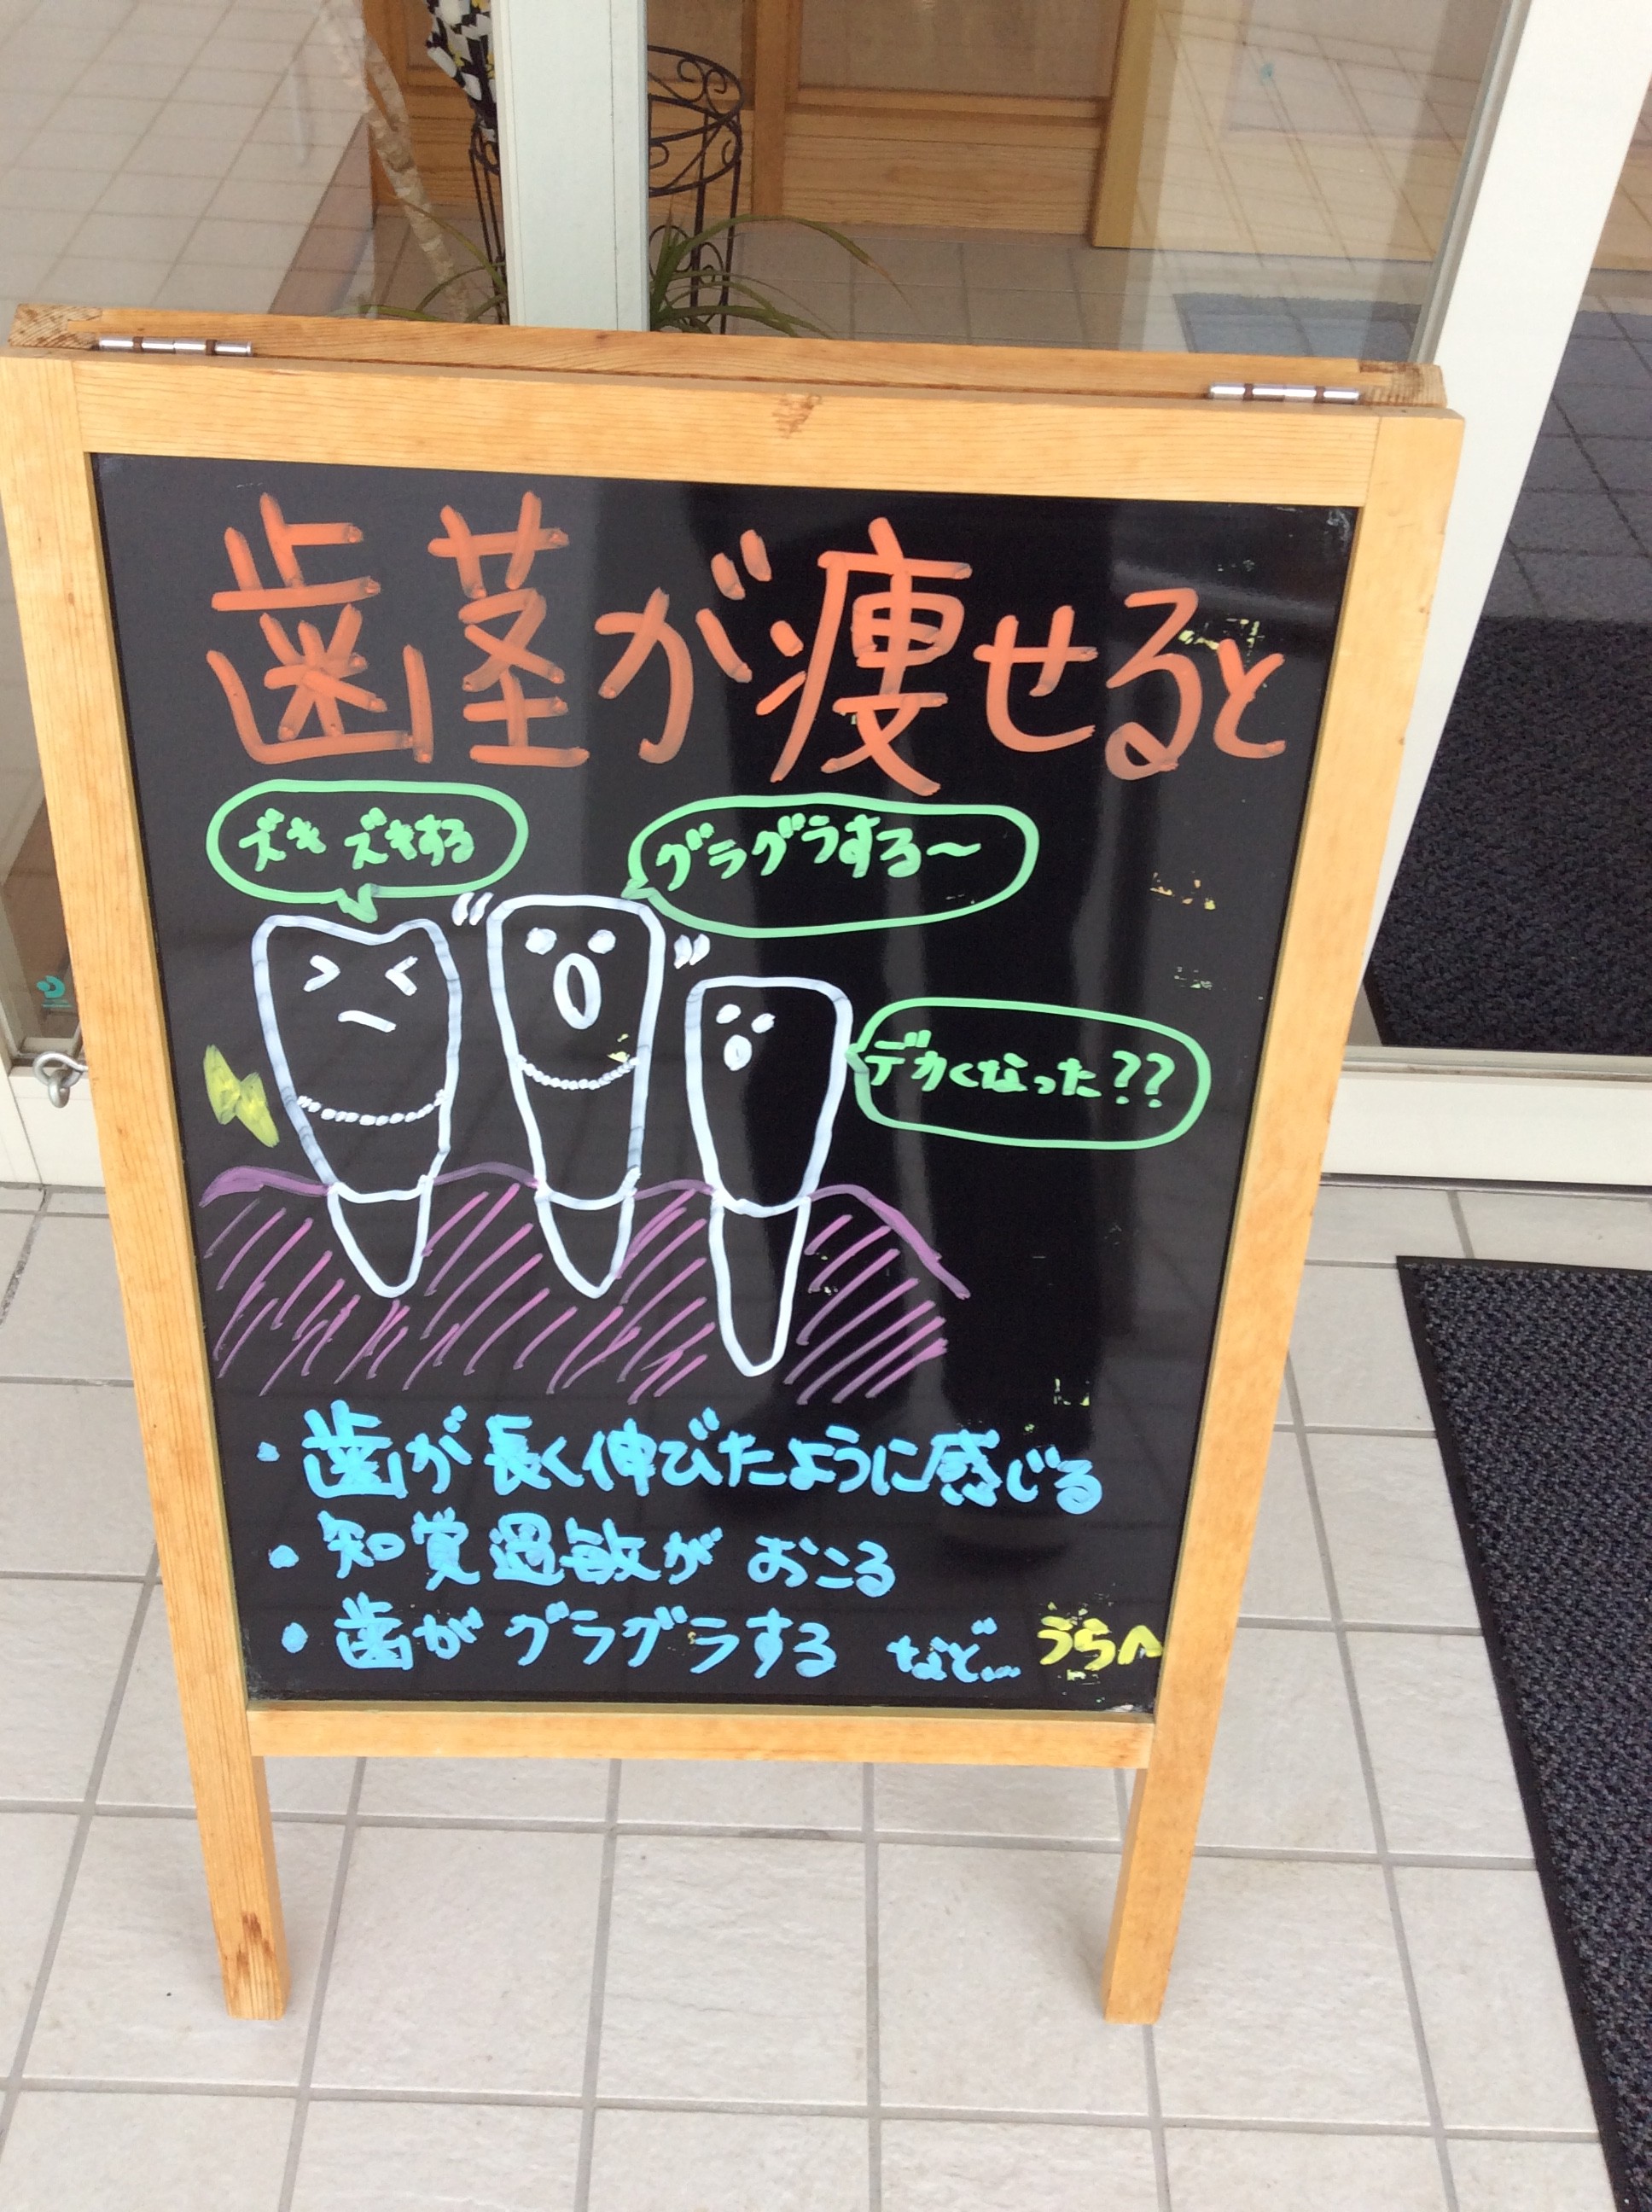 歯茎が痩せると
ズキズキする
グラグラする〜
デカくなった??
・歯が長く伸びたように感じる
・知覚過敏がおこる
・歯がグラグラする など... うらへ